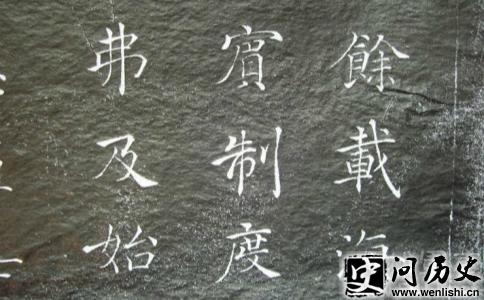 餘載
賓制度
弗及始
史问历史
www.wenlishi.cn